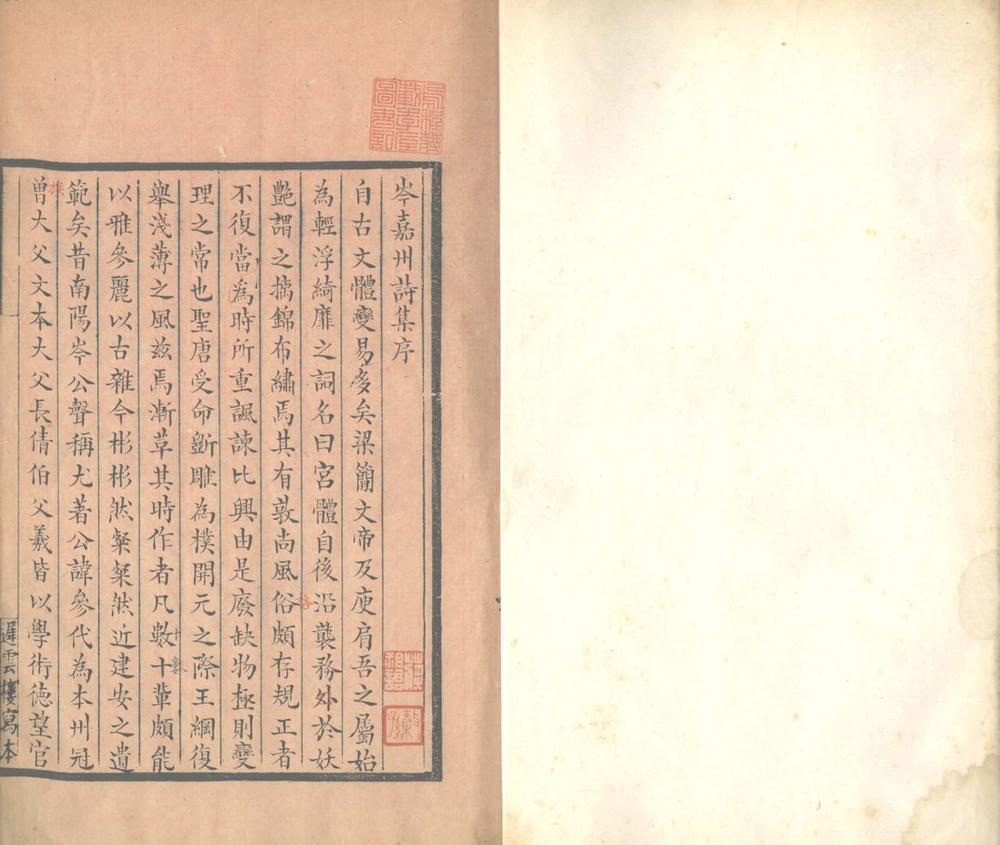 岑嘉州詩集序
自古文體變易多矣梁簡文帝及庾肩吾之屬始
為輕浮綺靡之詞名曰宮體自後沿襲務外於妖
艷謂之摛錦布繡焉其有敦尚風俗頗存規正者
不復當為時所重諷諫比興由是廢缺物極則變
理之常也聖唐受命斵雕為樸開元之際王綱復
舉淺薄之風兹焉漸革其時作者凡數十輩頗能
以雅參麗以古雜今彬彬然粲粲然近建安之遺
範矣昔南陽岑公聲稱尤著公諱參代為本州冠
曾大父文本大父長倩伯父羲皆以學術德望官
遲雲樓寫本